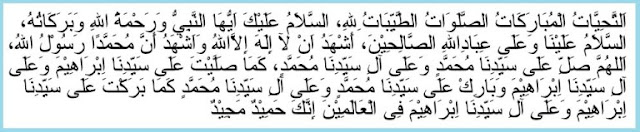 اَلتَّحِيَّاتُ الْمُبَارَكَاتُ الصَّلَوَاتُ الطَّيِّبَاتُ لِلّٰهِ، السَّلَامُ عَلَيْكَ اَيُّهَا النَّبِيُّ وَرَحْمَةُ اللهِ وَبَرَكَاتُهُ،
السَّلَامُ عَلَيْنَا وَعَلَى عِبَادِاللهِ الصَّالِحِيْنَ، أَشْهَدُ اَنْ لَا إِلَهَ إِلَّااللهُ وَاَشْهَدُ اَنَّ مُحَمَّدًا رَسُوْلُ اللهِ،
اَللهُمَّ صَلِّ عَلَى سَيِّدِنَا مُحَمَّدٍ وَعَلَى آلِ سَيِّدِنَا مُحَمَّدٍ، كَمَا صَلَّيْتَ عَلَى سَيِّدِنَا اِبْرَاهِيْمَ وَعَلَى
آلِ سَيِّدِنَا اِبْرَاهِيْمَ وَبَارِكْ عَلَى سَيِّدِنَا مُحَمَّدٍ وَعَلَى آلِ سَيِّدِنَا مُحَمَّدٍ كَمَا بَرَكْتَ عَلَى سَيِّدِنَا
اِبْرَاهِيْمَ وَعَلَى آلِ سَيِّدِنَا اِبْرَاهِيْمَ فِى الْعَالَمِيْنَ اِنَّكَ حَمِيْدٌ مَجِيْدٌ